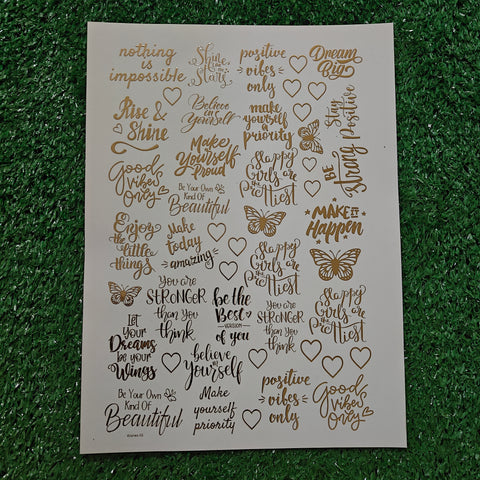 nothing
is
impossible
Shine
like
the
Stars
positive
vibes
only
Dream
Big
Rise &
Shine
Believe
in
Yourself
make
yourself
a
priority
Stay
Positive
BE
Strong
Good
Vibes
Only
Make
Yourself
Proud
Happy
Girls are
the
Prettiest
Be Your Own
Kind Of
Beautiful
MAKE IT
Happen
Enjoy
the
little
things
Make
today
amazing
Happy
Girls are
the
Prettiest
You are
STRONGER
than You
think
be the
Best
VERSION
of you
You are
STRONGER
than You
think
Happy
Girls are
the
Prettiest
Let
Your
Dreams
be your
Wings
believe
in
Yourself
Be Your Own
Kind Of
Beautiful
Make
yourself
priority
positive
vibes
only
Good
Vibes
Only